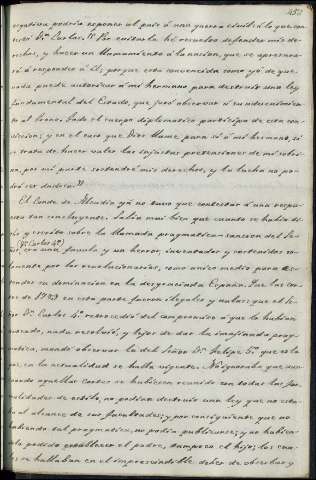 453
negativa podría esponer al país á una guerra civil á lo que con-
testó Dn. Carlos. Si Por evitarla he resuelto defender mis de-
rechos, y hacer un llamamiento á la nacion, que se apresurará
á responder á él; porque esta convencida como yo, de que
nada puede autorizar á mi hermano para destruir una ley
fundamental del Estado, que juró observar á su advenimiento
al trono. Todo el cuerpo diplomatico participa de esta con-
viccion; y en el caso que Dios llame para sí á mi hermano, si
se trata de hacer valer las injustas pretensiones de mi sobri-
na, por mi parte sostendré mis derechos, y la lucha no po-
drá ser dudosa."
El Conde de Alcudia ya no tuvo que contestar á una respu-
esta tan concluyente. Sabia mui bien que cuanto se habia di-
cho y escrito sobre la llamada pragmatica-sancion del Se-
(Dn. Carlos 4º)
ñor era una fabula y un herror, inventados y sostenidos so-
lamente por los revolucionarios, como unico medio para es-
tender su dominacion en la desgraciada España. Que las cor-
tes de 1789 en esta parte fueron ilegales y nulas: que el Se-
ñor Dn. Carlos 4º retrocedió del compromiso á que le habian
, nada resolvió, y lejos de dar la imaginada prag-
matica, mandó observar la del Señor Dn. Felipe 5º, que es la
que en la actualidad se halla vigente. No ignoraba que aun-
cuando aquellas cortes se hubiesen reunido con todas las for-
malidades de estilo, no podian destruir una ley que no esta-
ba al alcance de sus facultades; y por consiguiente que no
habiendo tal pragmatica, no podia publicarse; y no habien-
dola podido establecer el padre, tampoco el hijo; los cua-
les se hallaban en el imprescindible deber de observar y